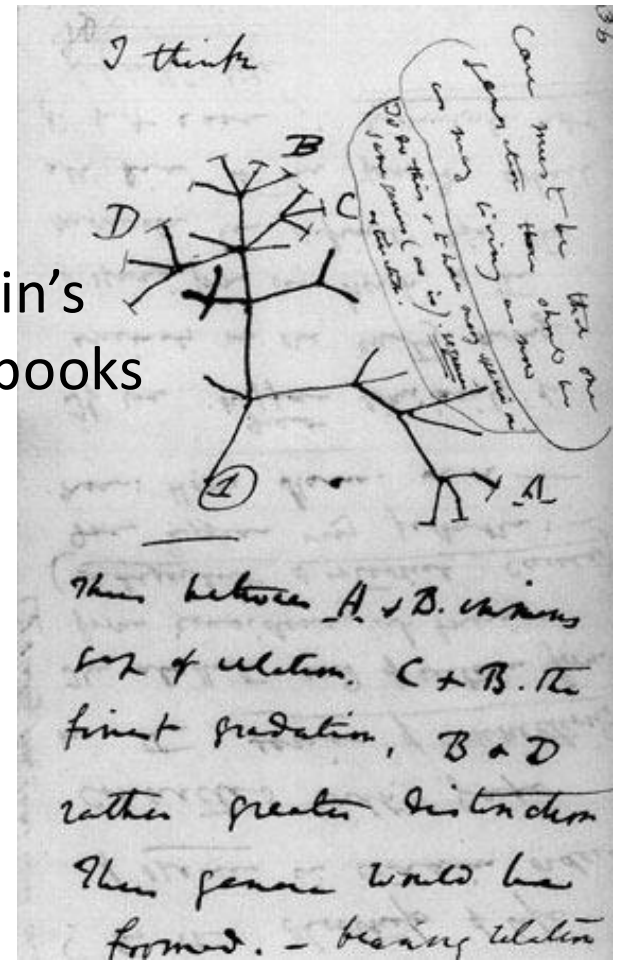 36
I think
Case must be that one
generation then should be
as many living as now
To do this & to have many species in
same genus (as is) requires
extinction.
B
C
D
in's
books
1
A
Thus between A & B. immens
gap of relation. C & B. the
finest gradation, B & D
rather greater distinction
Thus genera would be
formed. — bearing relation